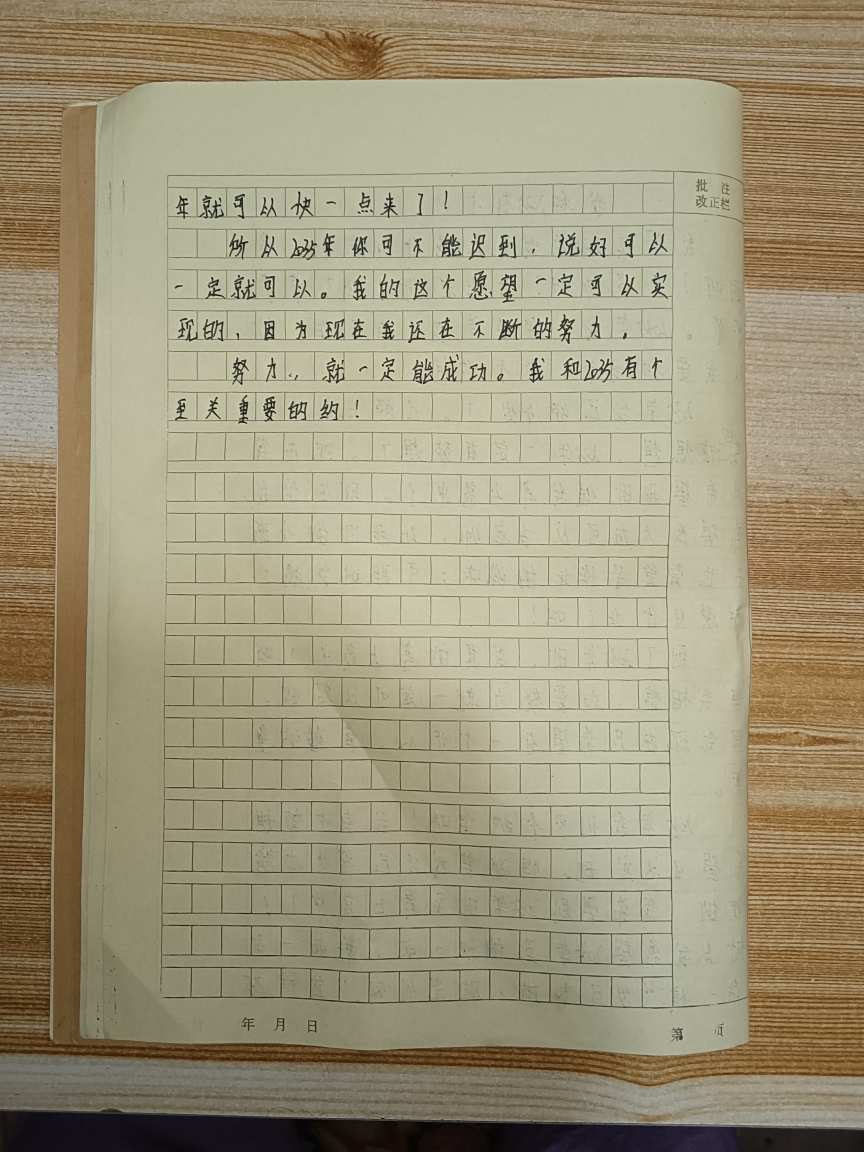 批注
改正栏
年就可以快一点来了！
所以2035年你可不能迟到，说好可以
一定就可以。我的这个愿望一定可以实
现的，因为现在我还在不断的努力。
努力，就一定能成功。我和2035有个
至关重要的约！
年 月 日
第 页